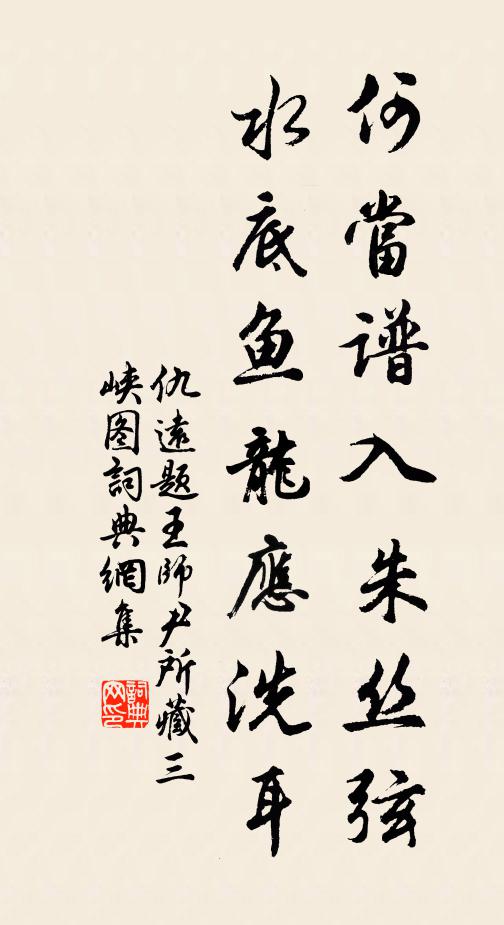 何當譜入朱丝弦
水底鱼龍應洗耳
仇遠題王師尹所藏三
峡图詞典網集
詞典
网印